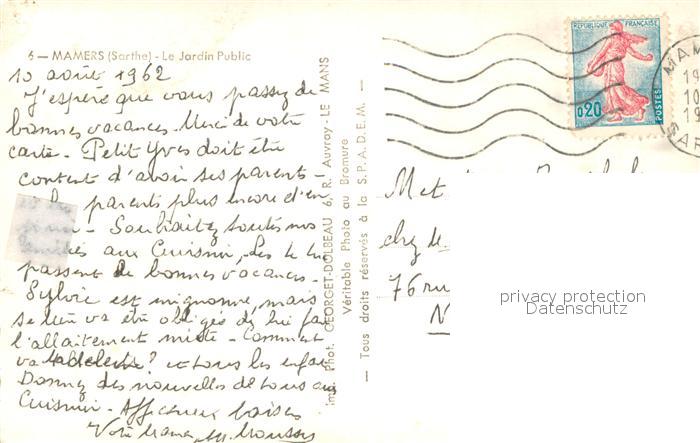 6 — MAMERS (Sarthe) - Le Jardin Public
10 août 1962
J'espère que vous passez de
bonnes vacances. Merci de votre
carte. Petit Yves doit être
content d'avoir ses parents -
parents plus encore d'en
Souhaitez toutes nos
aux Cuisnier. Les
passent de bonnes vacances.
Sylvie est mignonne, mais
va être obligée de lui
l'allaitement mixte - Comment
va ? et tous les
Donnez des nouvelles de tous aux
Cuisnier - Affectueux baisers
Votre
Phot. GEORGET-DOLBEAU 6, R. Auvray - LE MANS
Véritable Photo au Bromure
— Tous droits réservés à la S.P.A.D.E.M. —
REPUBLIQUE FRANÇAISE
0,20
POSTES
MAM
10
SAR
Met
chez
76 ru
N
privacy protection
Datenschutz